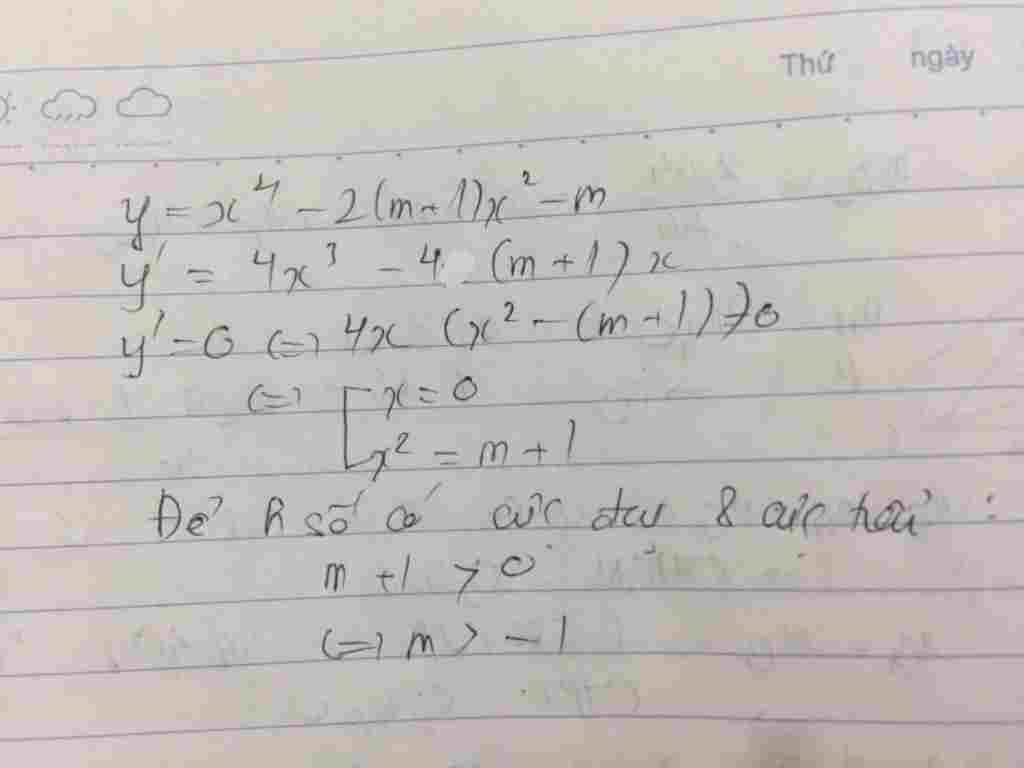 Thứ ngày
y = x⁴ - 2(m+1)x² - m
y' = 4x³ - 4 (m+1) x
y' = 0 (=) 4x (x² - (m+1)) = 0
(=) [ x = 0
x² = m + 1
Để h số có cực đại & cực tiểu :
m + 1 > 0
(=) m > -1